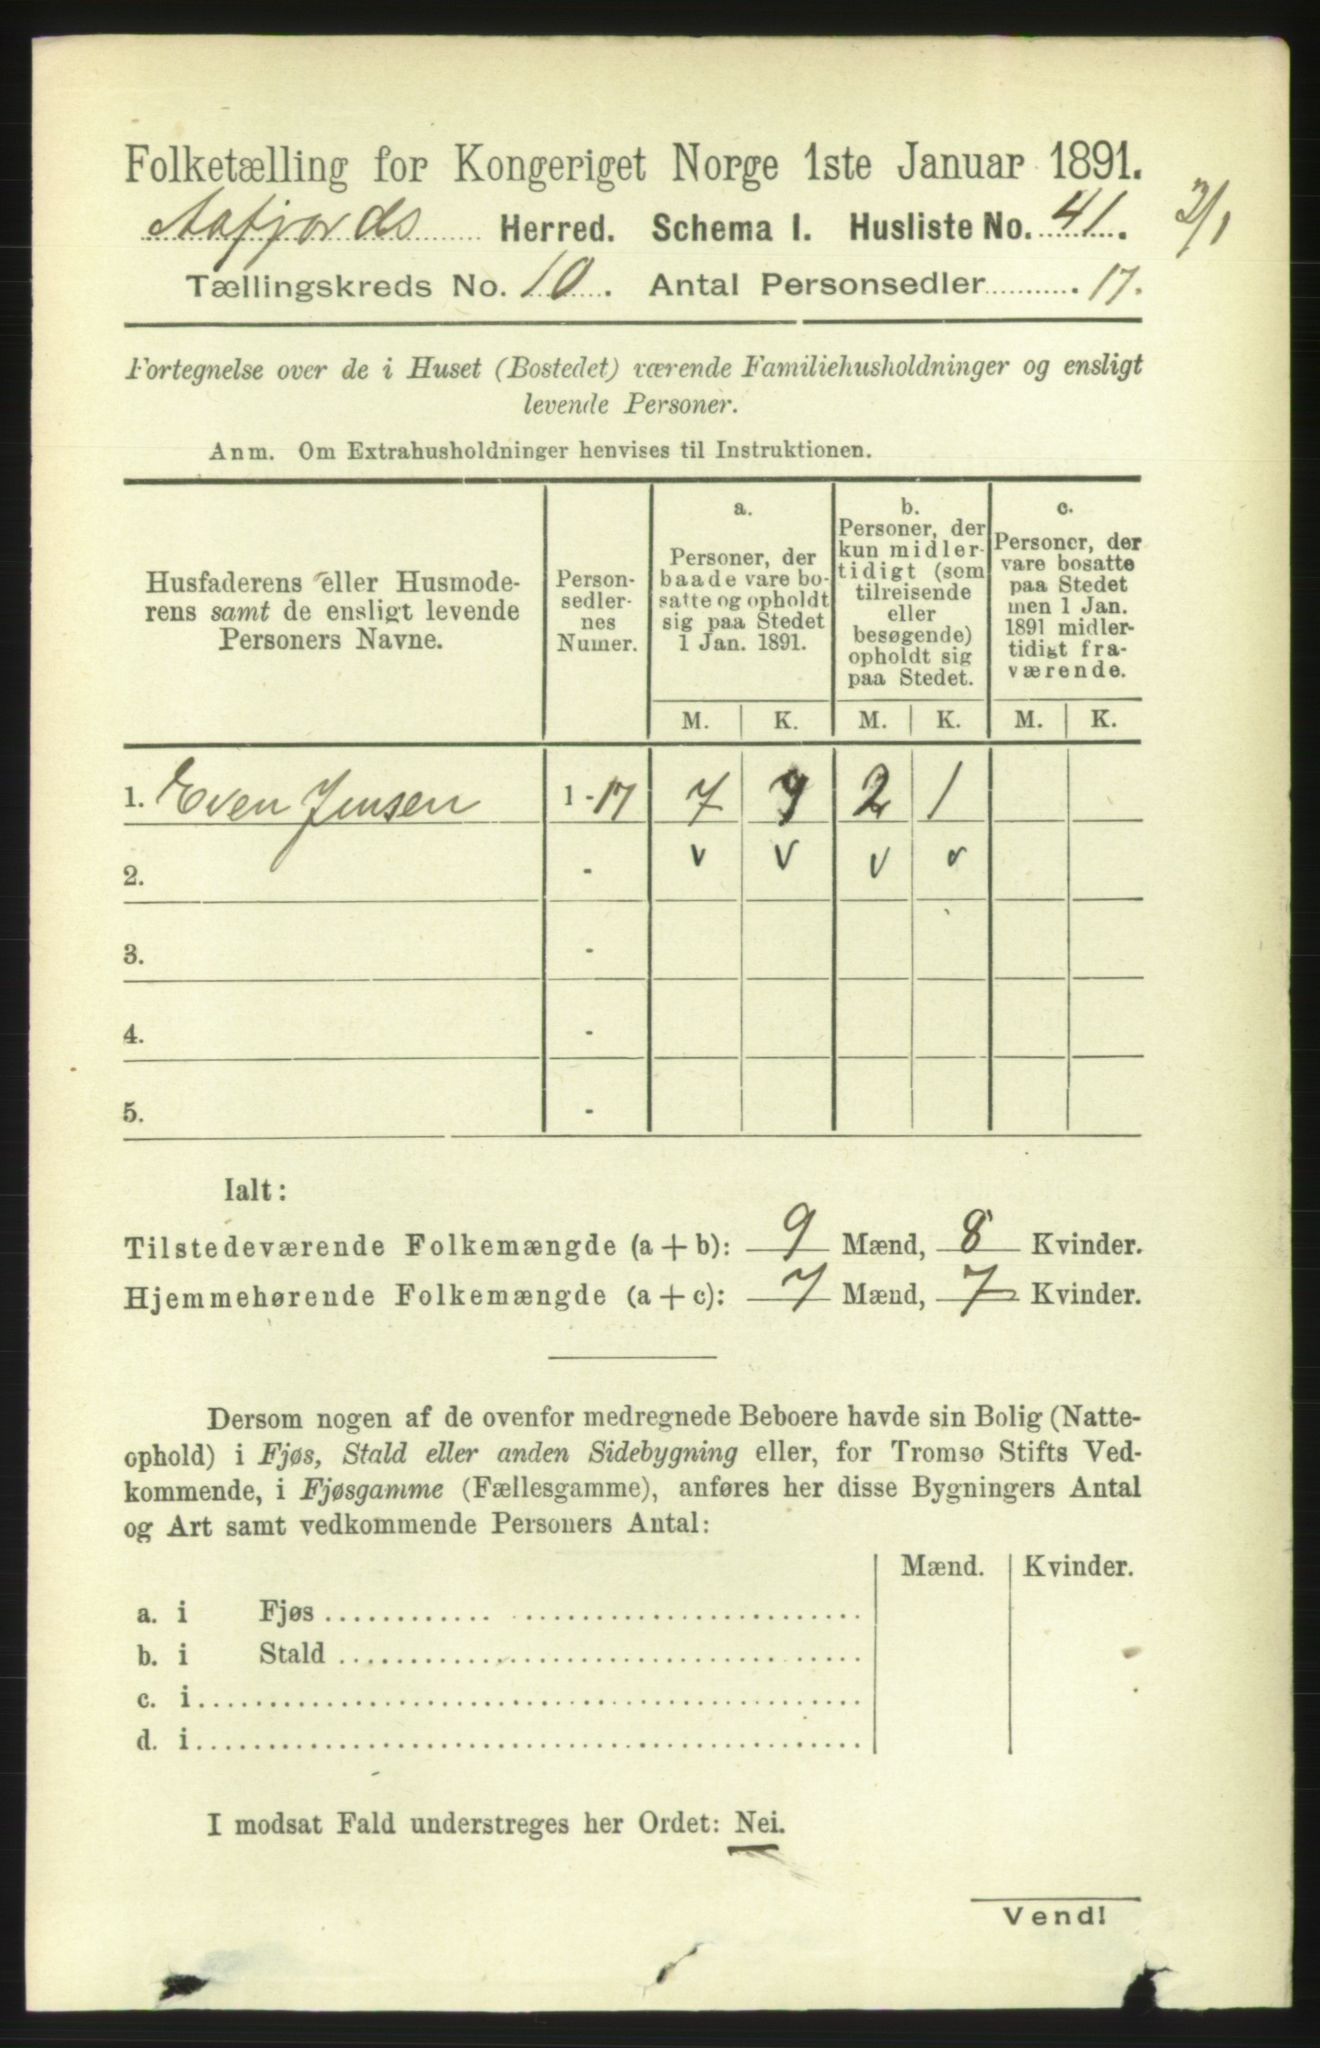 Folketælling for Kongeriget Norge 1ste Januar 1891.
Aafjords Herred. Schema I. Husliste No. 41. 2/1
Tællingskreds No. 10. Antal Personsedler 17.
Fortegnelse over de i Huset (Bostedet) værende Familiehusholdninger og ensligt
levende Personer.
Anm. Om Extrahusholdninger henvises til Instruktionen.
Husfaderens eller Husmode-
rens samt de ensligt levende
Personers Navne.
Person-
sedler-
nes
Numer.
a.
Personer, der
baade vare bo-
satte og opholdt
sig paa Stedet
1 Jan. 1891.
b.
Personer, der
kun midler-
tidigt (som
tilreisende
eller
besøgende)
opholdt sig
paa Stedet.
c.
Personer, der
vare bosatte
paa Stedet
men 1 Jan.
1891 midler-
tidigt fra-
værende.
M. K. M. K. M. K.
1. Even Jensen 1-17 7 7 2 1
2. - v v v v
3. -
4. -
5. -
Ialt:
Tilstedeværende Folkemængde (a+b): 9 Mænd, 8 Kvinder.
Hjemmehørende Folkemængde (a+c): 7 Mænd, 7 Kvinder.
Dersom nogen af de ovenfor medregnede Beboere havde sin Bolig (Natte-
ophold) i Fjøs, Stald eller anden Sidebygning eller, for Tromsø Stifts Ved-
kommende, i Fjøsgamme (Fællesgamme), anføres her disse Bygningers Antal
og Art samt vedkommende Personers Antal:
Mænd. Kvinder.
a. i Fjøs
b. i Stald
c. i
d. i
I modsat Fald understreges her Ordet: Nei.
Vend!